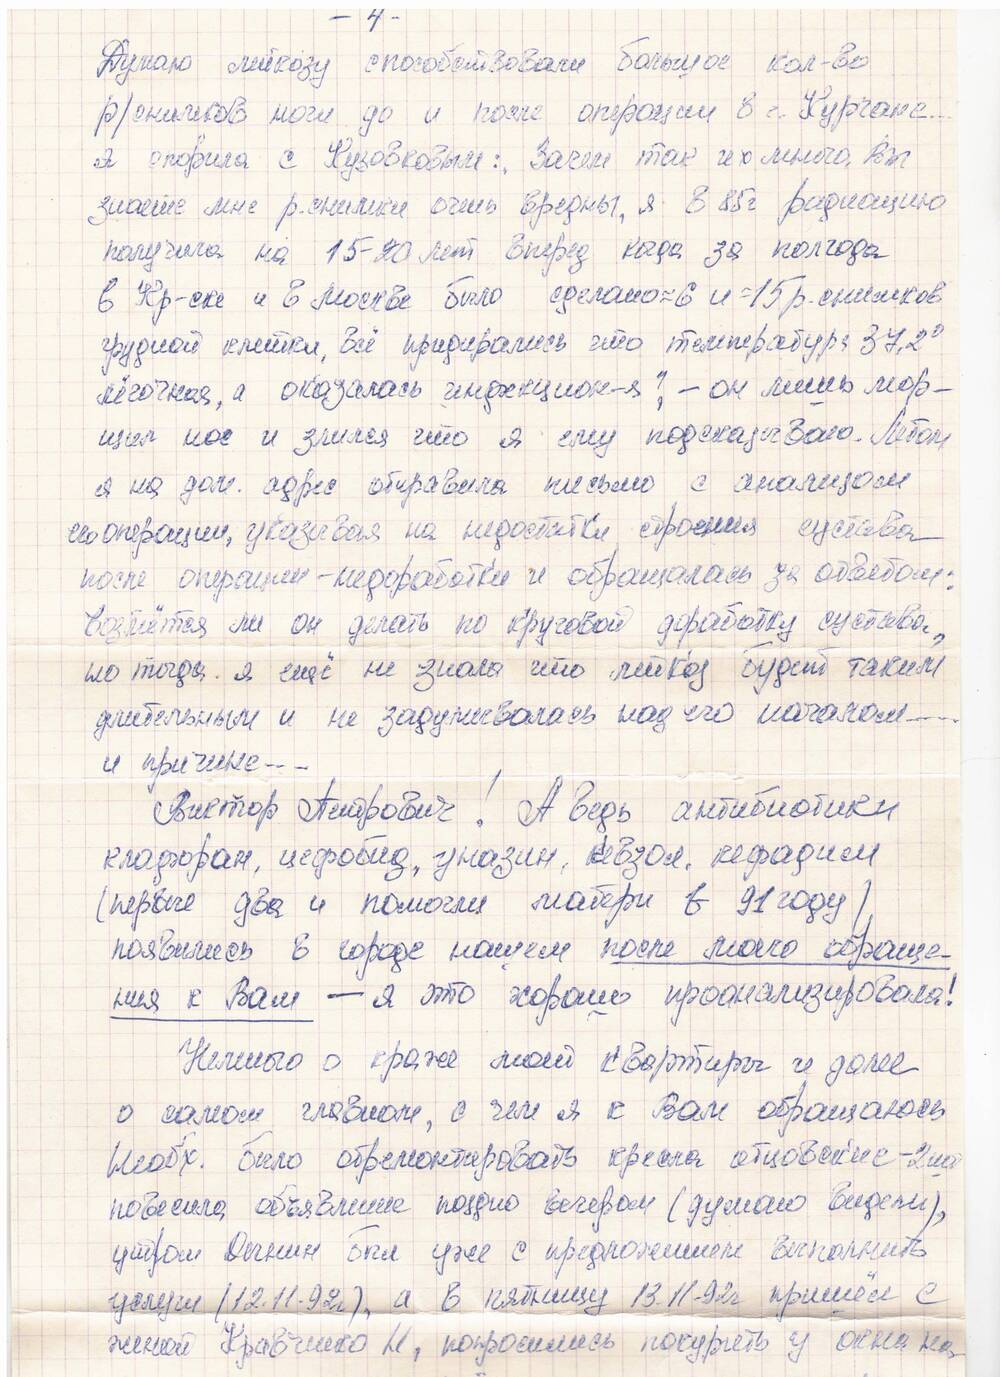 - 4 -
Думаю лейкозу способствовали большое кол-во
р/снимков ноги до и после операции в г. Кургане...
я спорила с Кузовковым: "Зачем так их много, Вы
знаете мне р.снимки очень вредны, я в 85г радиацию
получила на 15-20 лет вперед когда за полгода
в Кр-ске и в Москве было сделано ≈6 и =15 р.снимков
грудной клетки, всё придирались что температура 37,2°
лёгочная, а оказалась инфекцион-я" - он лишь мор-
щил нос и злился что я ему подсказываю. Летом
я на дом. адрес отправила письмо с анализом
его операции, указывая на недостатки строения сустава
после операции - недоработки и обращалась за ответом:
возьмётся ли он делать по круговой доработку сустава,
но тогда я ещё не знала что лейкоз будет таким
длительным и не задумывалась над его началом ----
и причине ---
Виктор Петрович! А ведь антибиотики
клафоран, цефобид, уназин, кевзол, кефадим
(первые два и помогли матери в 91 году)
появились в городе нашем после моего обраще-
ния к Вам — я это хорошо проанализировала!
Немного о краже моей квартиры и далее
о самом главном, с чем я к Вам обращаюсь
Необх. было отремонтировать кресла отцовские - 2шт
повесила объявление поздно вечером (думаю видели),
утром был уже с предложением выполнить
услуги (12.11.92г), а в пятницу 13.11.92г пришёл с
женой Кравченко Н, попросились покурить у окна на